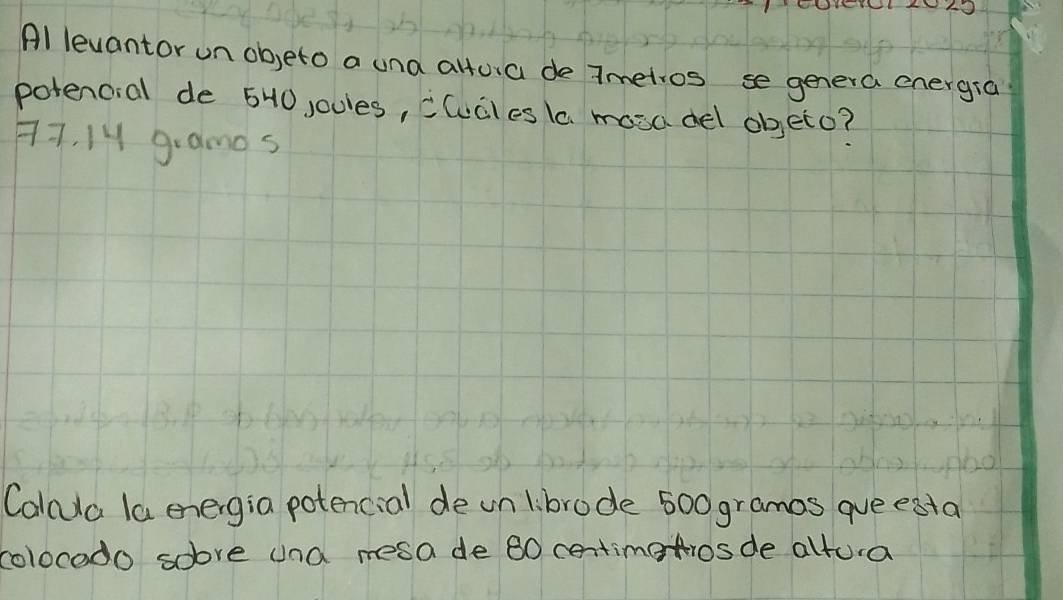 2025
Al levantar un objeto a una altura de 7metros se genera energía
potencial de 540 joules, ¿Cuál es la masa del objeto?
77.14 gramos
Calcula la energia potencial de un libro de 500gramos que esta
colocado sobre una mesa de 80 centimetros de altura